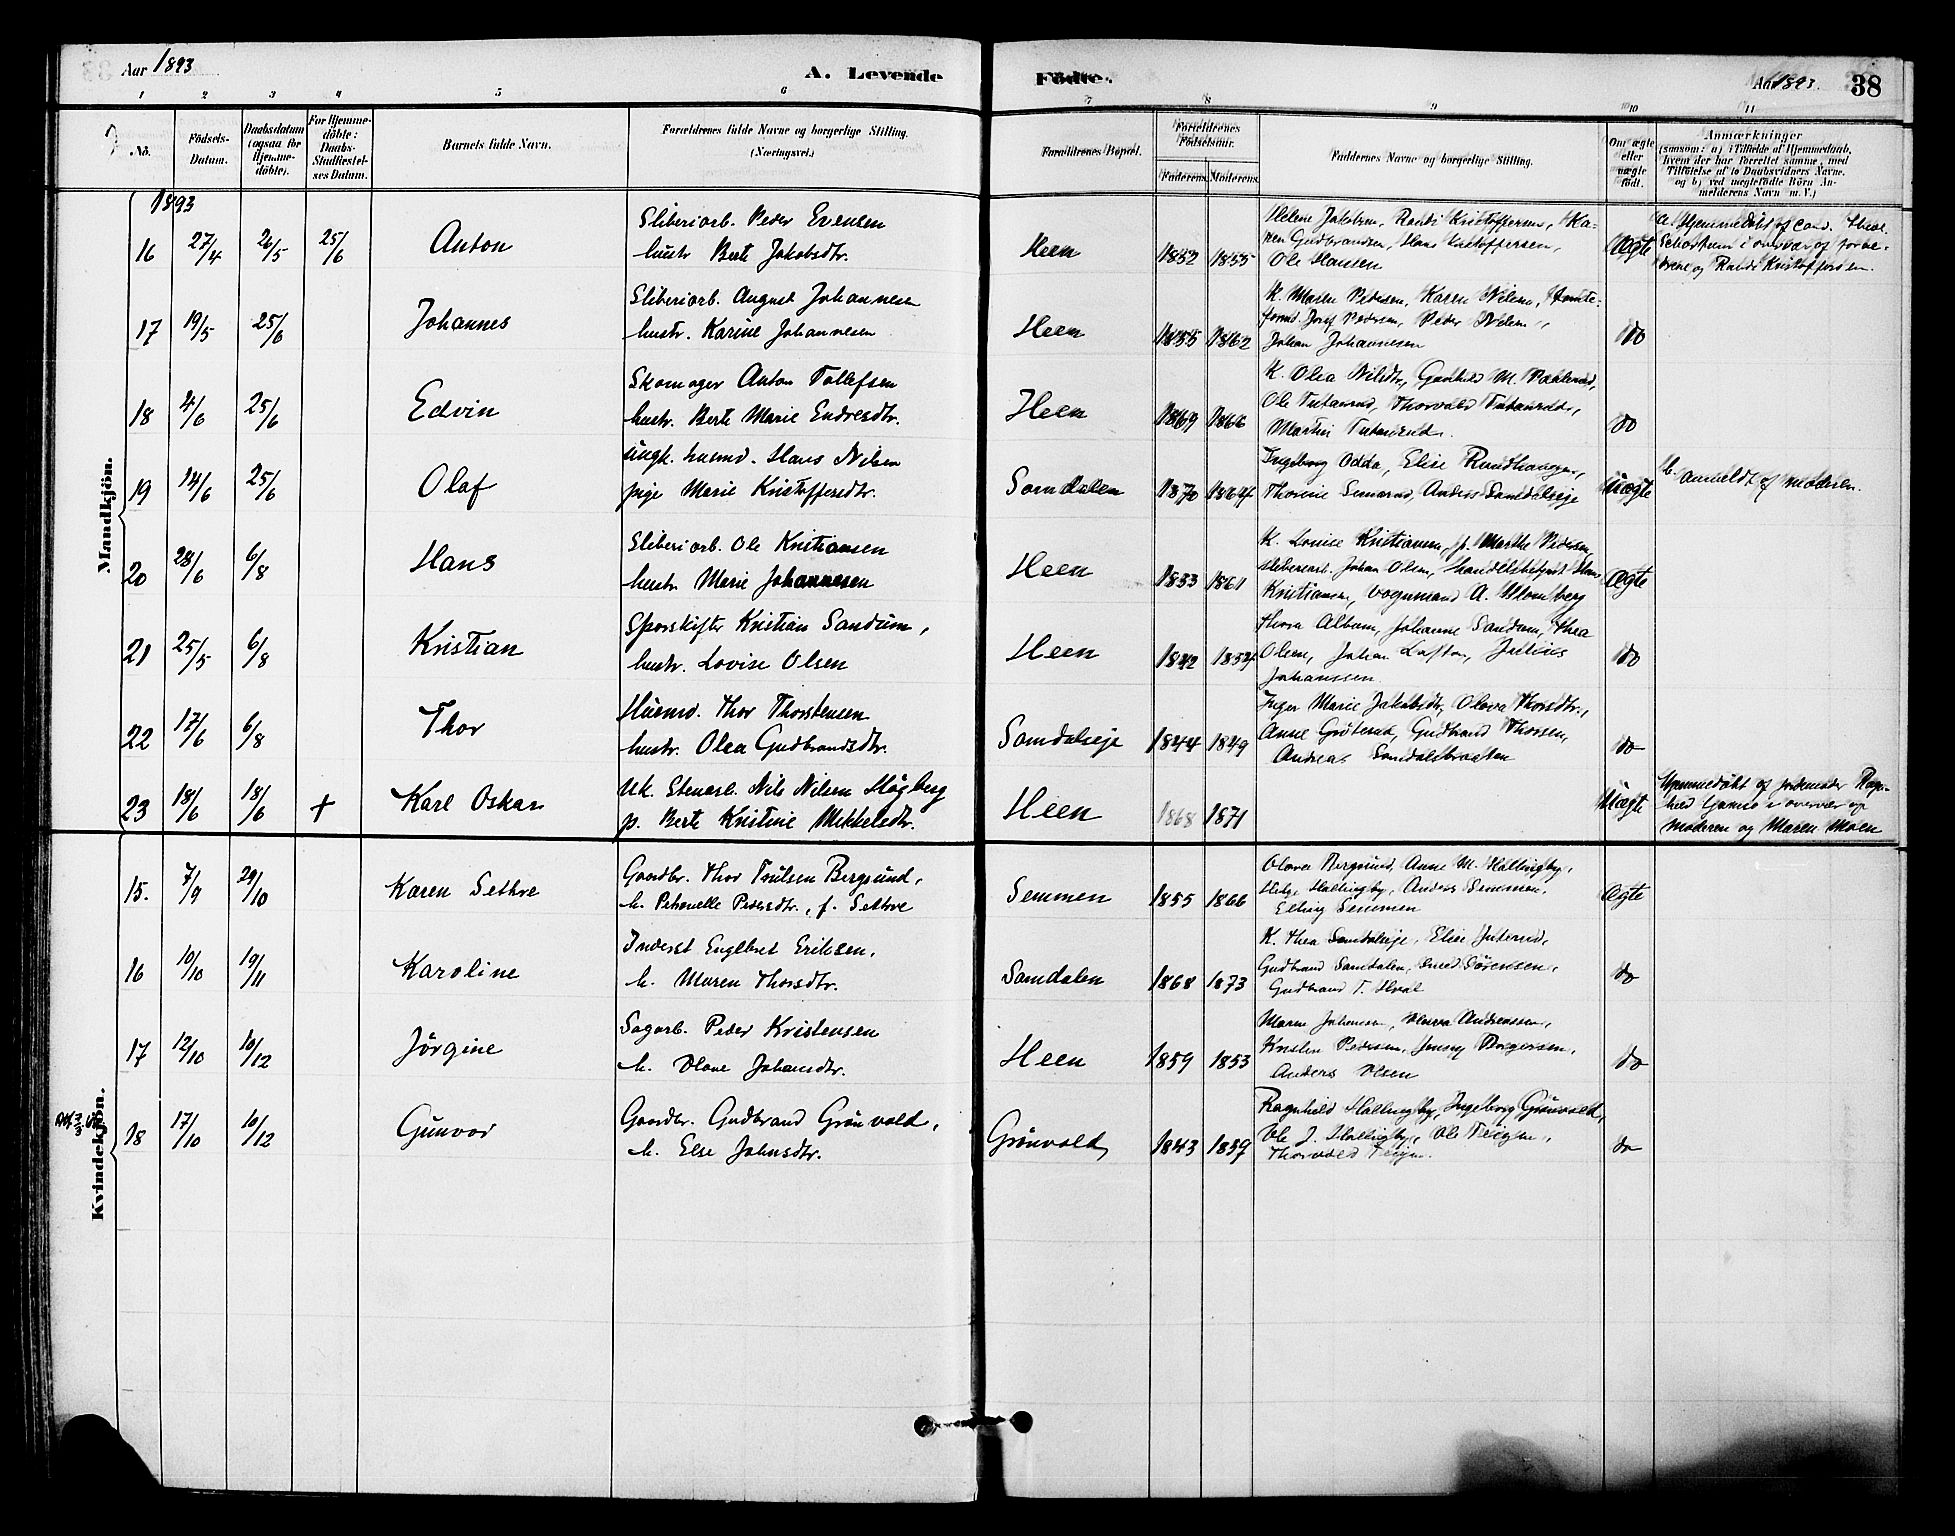 Aar 1893
A. Levende
Födte.
Aar 1893.
38
1 2 3 4 5 6 7 8 9 10 11
No.
Födsels-
Datum.
Daabsdatum
(ogsaa for
Hjemme-
döbte).
For Hjemme-
döbte:
Daabs-
Stadfæstel-
ses Datum.
Barnets fulde Navn.
Forældrenes fulde Navne og borgerlige Stilling.
(Næringsvei.)
Forældrenes Bopæl.
Forældrenes
Födselsaar.
Faderens. Moderens.
Faddernes Navne og borgerlige Stilling.
Om ægte
eller
uægte
födt.
Anmærkninger
(saasom: a) i Tilfælde af Hjemmedaab,
hvem der har forrettet samme, med
Tilföielse af to Daabsvidners Navne,
og b) ved uægtefödte Börn An-
melderens Navn m. V.)
Mandkjön.
1893
16 27/4 26/5 25/6 Anton
Sliberiarb. Peder Evensen
hustr. Berte Jakobsdtr.
Heen 1852 1855
Helene Jakobsen, Randi Kristoffersen, Ka-
ren Gudbrandsen, Hans Kristoffersen,
Ole Hansen
Ægte
a. Hjemmedöbt af cand. theol.
i overvær af foræl-
drene og Randi Kristoffersen.
17 19/5 25/6 Johannes
Sliberiarb. August Johannesen
hustr. Karine Johannesen
Heen 1855 1862
K. Maren Pedersen, Karen Nilsen,
Josef Pedersen, Peder Nilsen,
Johan Johannesen
do
18 4/6 25/6 Edvin
Skomager Anton Tollefsen
hustr. Berte Marie Endresdtr.
Heen 1869 1866
K. Olea Nilsdtr,
Ole Tutanrud, Thorvald Tutanrud,
Martin Tutanrud.
do
19 14/6 25/6 Olaf
ungk. husmd. Hans Nilsen
pige Marie Kristoffersdtr.
Somdalen 1870 1864
Ingeborg Odda, Elise Randhaugen,
Thorine Semerud, Anders Samdalseje
Uægte
b. anmeldt af moderen.
20 28/6 6/8 Hans
Sliberiarb. Ole Kristiansen
hustr. Marie Johannesen
Heen 1853 1861
K. Louise Kristiansen, p. Marthe Pedersen,
Sliberiarb. Johan Olsen, Handelsbetjent Hans
Kristiansen, vognmand A. Blomberg
Ægte
21 25/5 6/8 Kristian
Sporskifter Kristian Sandum,
hustr. Lovise Olsen
Heen 1842 1854
Thora Album, Johanne Sandum, Thea
Olsen, Johan Lofton, Julius
Johanssen.
do
22 17/6 6/8 Thor
Husmd. Thor Thorstensen
hustr. Olea Gudbrandsdtr.
Samdalseje 1844 1849
Inger Marie Jakobsdtr, Olava Thorsdtr.,
Anne Gröterud, Gudbrand Thorsen,
Andreas Samdalsbraaten
do
23 18/6 18/6 + Karl Oskar
Uk. Stenarb. Nils Nilsen Högberg
p. Berte Kristine Mikkelsdtr.
Heen 1868 1871
Uægte
Hjemmedöbt af jordmoder Ragn-
hild i overvær af
moderen og Maren Moen
Kvindekjön.
15. 7/9 29/10 Karen Sethre
Gaardbr. Thor Trulsen Bergsund,
h. Petronelle Pedersdtr., f. Sethre
Semmen 1855 1866
Olava Bergsund, Anne M. Hallingby,
Helge Hallingby, Anders Semmen,
Elling Semmen
Ægte
16 10/10 19/11 Karoline
Inderst Engebret Eriksen,
h. Maren Thorsdtr.
Samdalen 1868 1873
K. Thea Samdalseje, Elise Juterud,
Gudbrand Samdalen, Sörensen,
Gudbrand T. Hval
do
17 12/10 10/12 Jörgine
Sagarb. Peder Kristensen
h. Olave Johansdtr.
Heen 1859 1853
Maren Johansen, Olava Andreassen,
Kristen Pedersen, Jenny Borgersen,
Anders Olsen
do
18 17/10 10/12 Gunvor
Gaardbr. Gudbrand Grönvold,
h. Else Johnsdtr.
Grönvold, 1843 1857
Ragnhild Hallingby, Ingeborg Grönvold,
Ole J. Hallingby, Ole Teigen,
Thorvald Teigen.
do